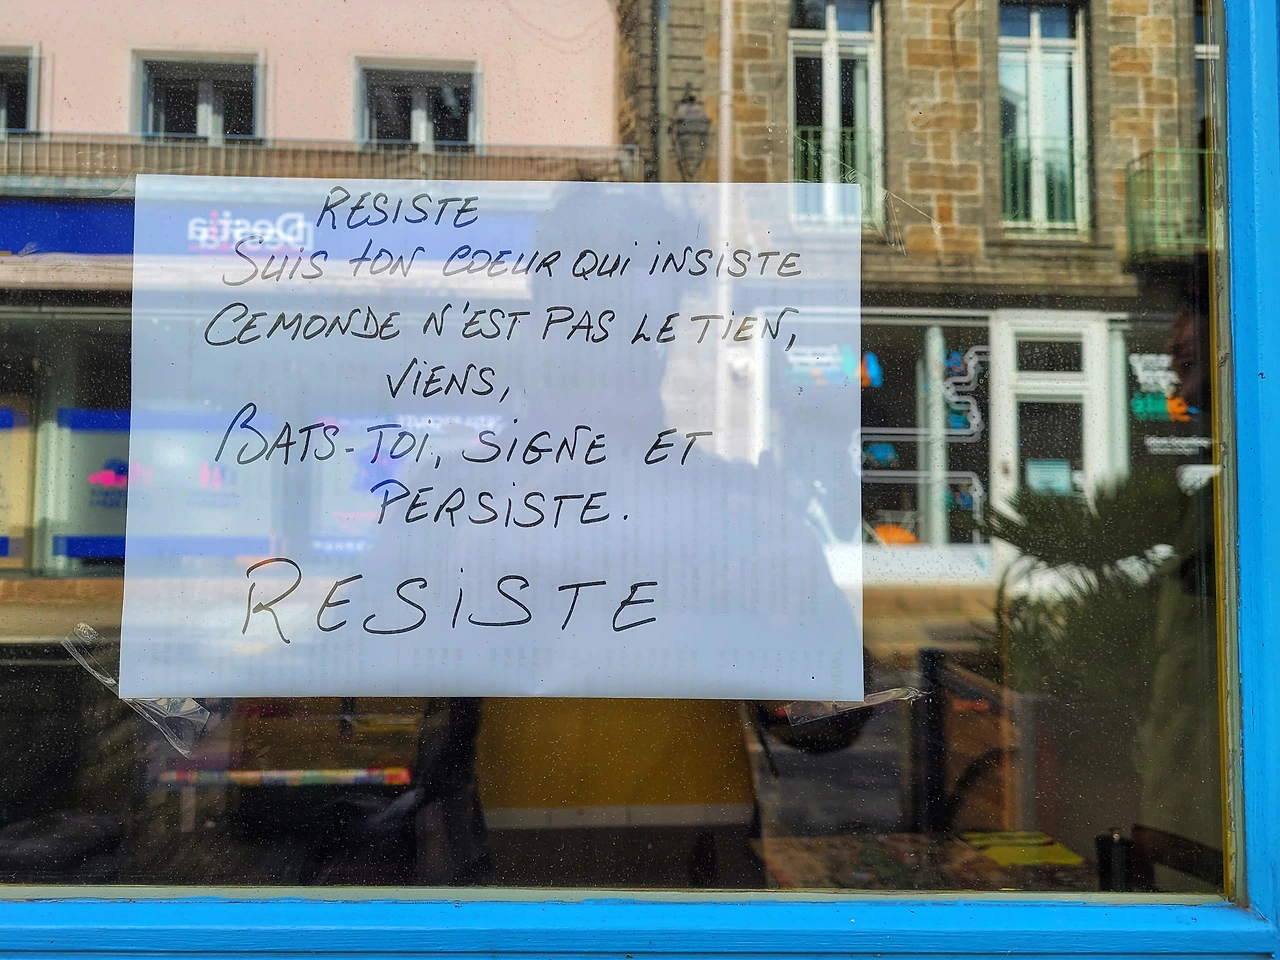 RESISTE
SUiS tON COEUR QUi iNSiSTE
CE MONDE N'EST PAS LE TiEN,
ViENS,
BATS-TOi, SiGNE ET
PERSiSTE.
RESiSTE
Destia